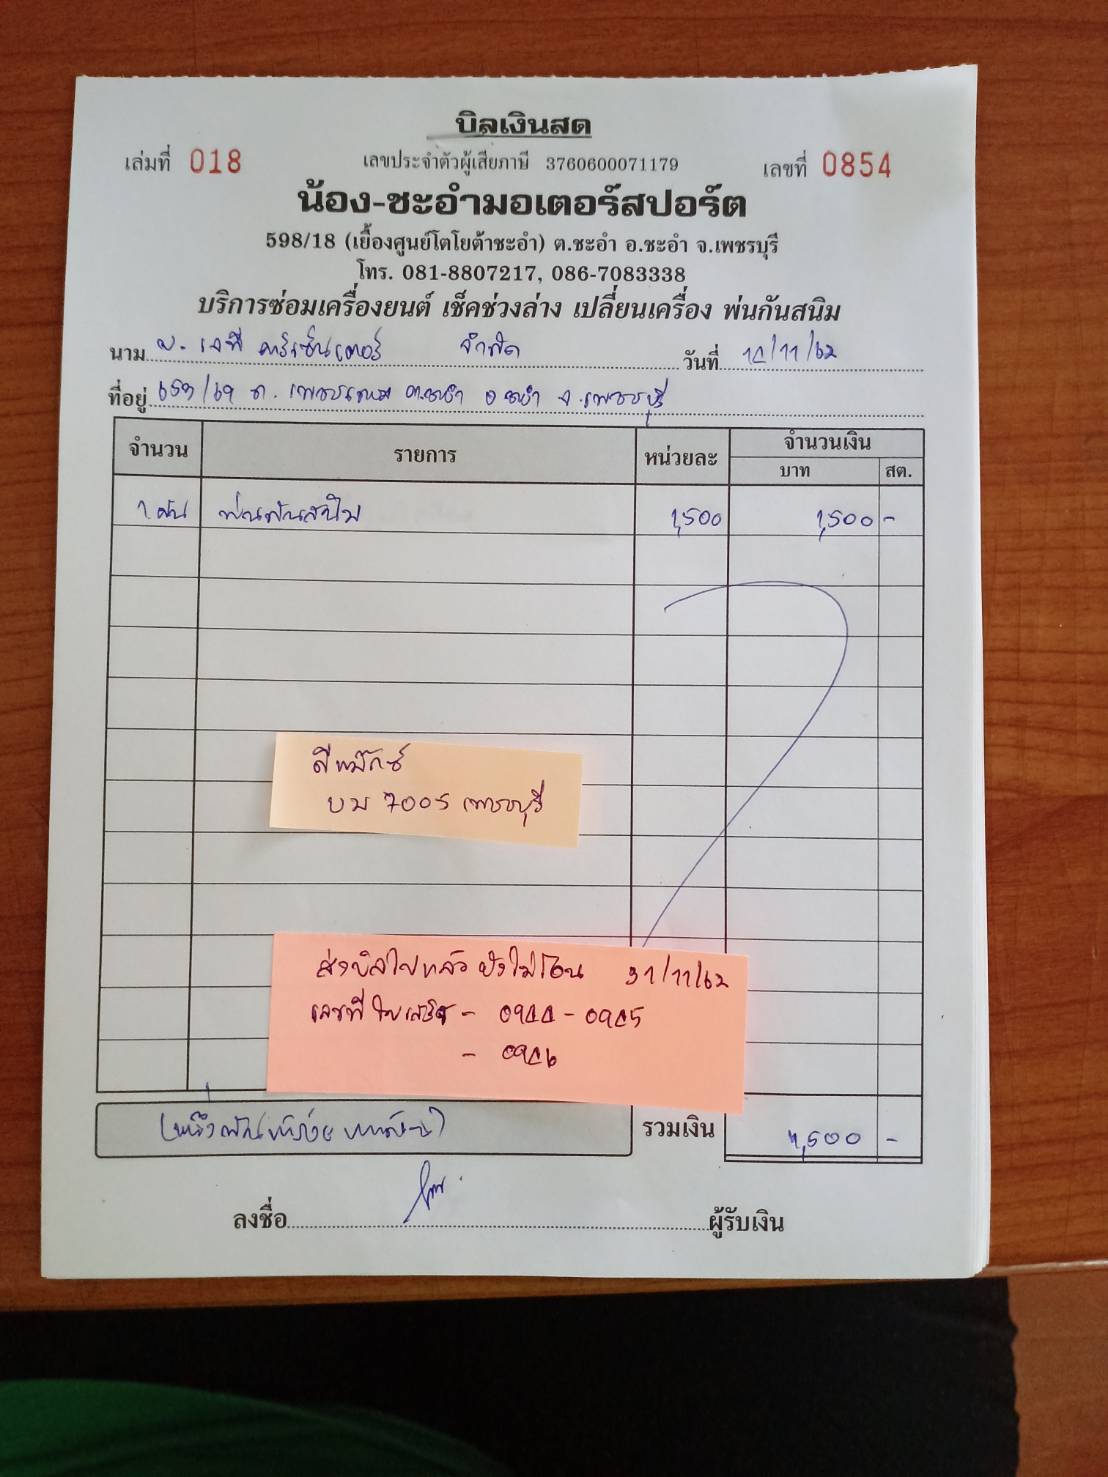 บิลเงินสด
เล่มที่ 018 เลขประจำตัวผู้เสียภาษี 3760600071179 เลขที่ 0854
น้อง-ชะอำมอเตอร์สปอร์ต
598/18 (เยื้องศูนย์โตโยต้าชะอำ) ต.ชะอำ อ.ชะอำ จ.เพชรบุรี
โทร. 081-8807217, 086-7083338
บริการซ่อมเครื่องยนต์ เช็คช่วงล่าง เปลี่ยนเครื่อง พ่นกันสนิม
นาม บ. เจพี คาร์เซ็นเตอร์ จำกัด วันที่ /11/62
ที่อยู่ ถ. เพชรเกษม ต.ชะอำ อ.ชะอำ จ.เพชรบุรี
จำนวน รายการ หน่วยละ จำนวนเงิน
บาท สต.
1 คัน พ่นกันสนิม 1,500 1,500 -
ดีแม๊กซ์
บม 7005 เพชรบุรี
ส่งบิลไปแล้ว ยังไม่โอน /11/62
เลขที่ใบเสร็จ -
(หนึ่งพันห้าร้อยบาทถ้วน) รวมเงิน 1,500 -
ลงชื่อ ผู้รับเงิน